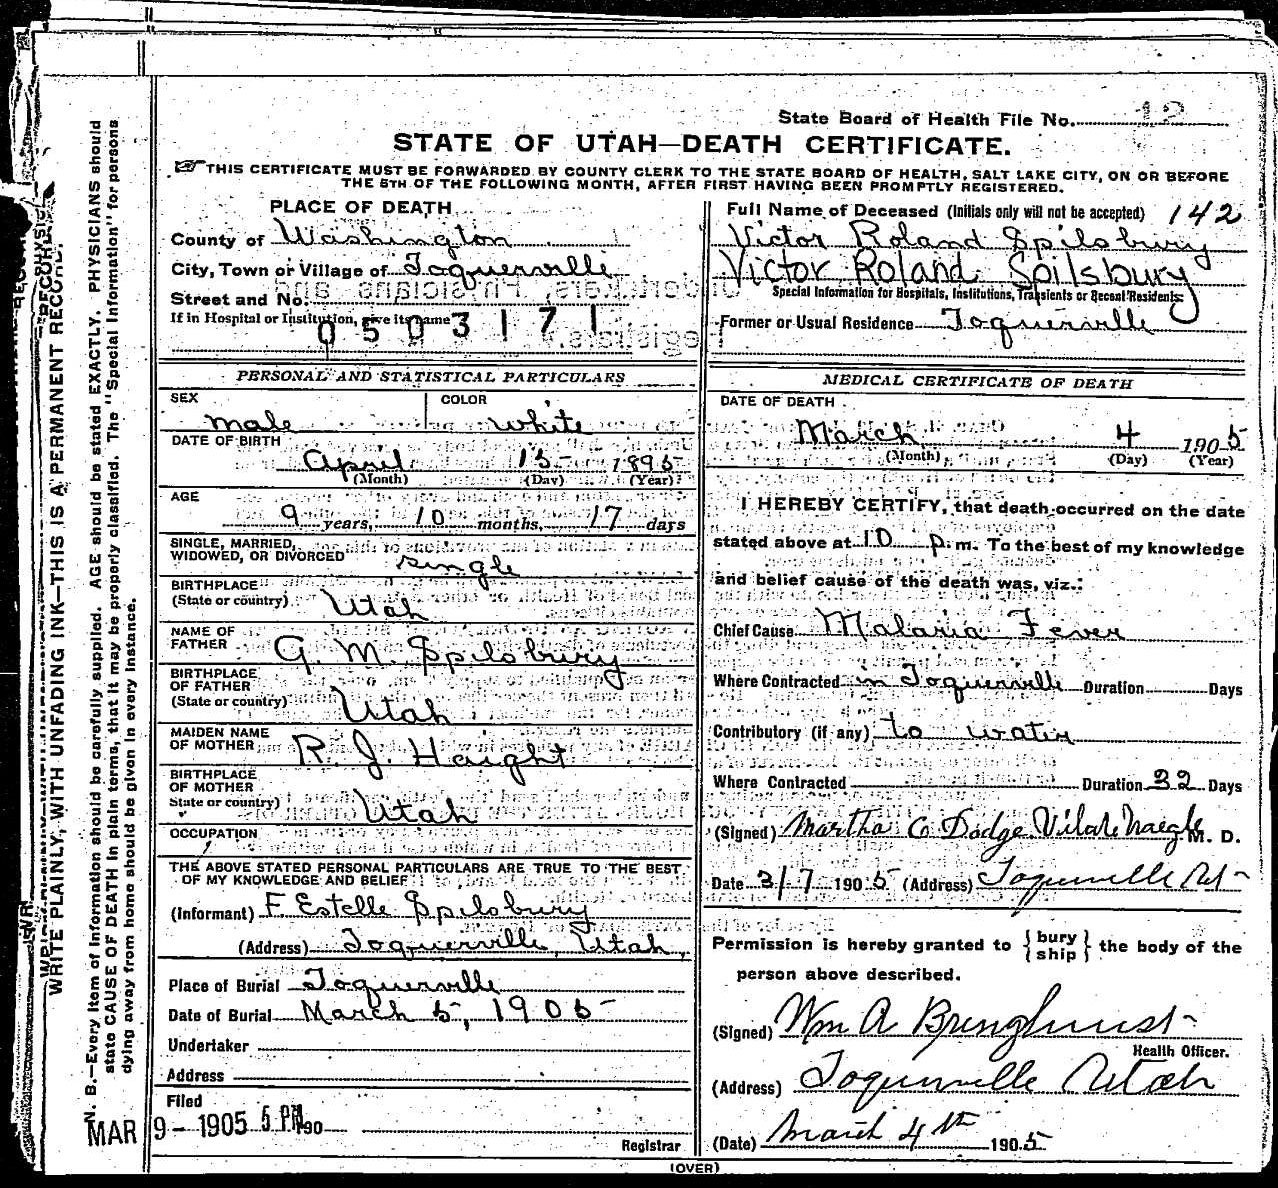 State Board of Health File No. 12
STATE OF UTAH—DEATH CERTIFICATE.
THIS CERTIFICATE MUST BE FORWARDED BY COUNTY CLERK TO THE STATE BOARD OF HEALTH, SALT LAKE CITY, ON OR BEFORE
THE 5TH OF THE FOLLOWING MONTH, AFTER FIRST HAVING BEEN PROMPTLY REGISTERED.
PLACE OF DEATH
County of Washington
City, Town or Village of Toquerville
Street and No.
If in Hospital or Institution, give its name
0503171
Full Name of Deceased (Initials only will not be accepted) 142
Victor Roland Spilsbury
Victor Roland Spilsbury
Special Information for Hospitals, Institutions, Transients or Recent Residents:
Former or Usual Residence Toquerville
PERSONAL AND STATISTICAL PARTICULARS
SEX
COLOR
male white
DATE OF BIRTH
April 15 1895
(Month) (Day) (Year)
AGE
9 years, 10 months, 17 days
SINGLE, MARRIED,
WIDOWED, OR DIVORCED single
BIRTHPLACE
(State or country) Utah
NAME OF
FATHER G. M. Spilsbury
BIRTHPLACE
OF FATHER
(State or country) Utah
MAIDEN NAME
OF MOTHER R. J. Haight
BIRTHPLACE
OF MOTHER
State or country) Utah
OCCUPATION
THE ABOVE STATED PERSONAL PARTICULARS ARE TRUE TO THE BEST
OF MY KNOWLEDGE AND BELIEF
(Informant) F Estelle Spilsbury
(Address) Toquerville, Utah,
Place of Burial Toquerville
Date of Burial March 5, 1905
Undertaker
Address
Filed
MAR 9 - 1905 5 PM 190
Registrar
MEDICAL CERTIFICATE OF DEATH
DATE OF DEATH
March 4 1905
(Month) (Day) (Year)
I HEREBY CERTIFY, that death occurred on the date
stated above at 10 p. m. To the best of my knowledge
and belief cause of the death was, viz.:
Chief Cause Malaria Fever
Where Contracted in Toquerville Duration Days
Contributory (if any) to water
Where Contracted Duration 32 Days
(Signed) Martha G Dodge Naegle M. D.
Date 3/7 1905 (Address) Toquerville Ut
Permission is hereby granted to {bury
ship} the body of the
person above described.
(Signed) Wm A Bringhurst
Health Officer.
(Address) Toquerville Utah
(Date) March 4th 1905
(OVER)
WRITE PLAINLY, WITH UNFADING INK—THIS IS A PERMANENT RECORD.
N. B.—Every item of information should be carefully supplied. AGE should be stated EXACTLY. PHYSICIANS should
state CAUSE OF DEATH in plain terms, that it may be properly classified. The "Special Information" for persons
dying away from home should be given in every instance.